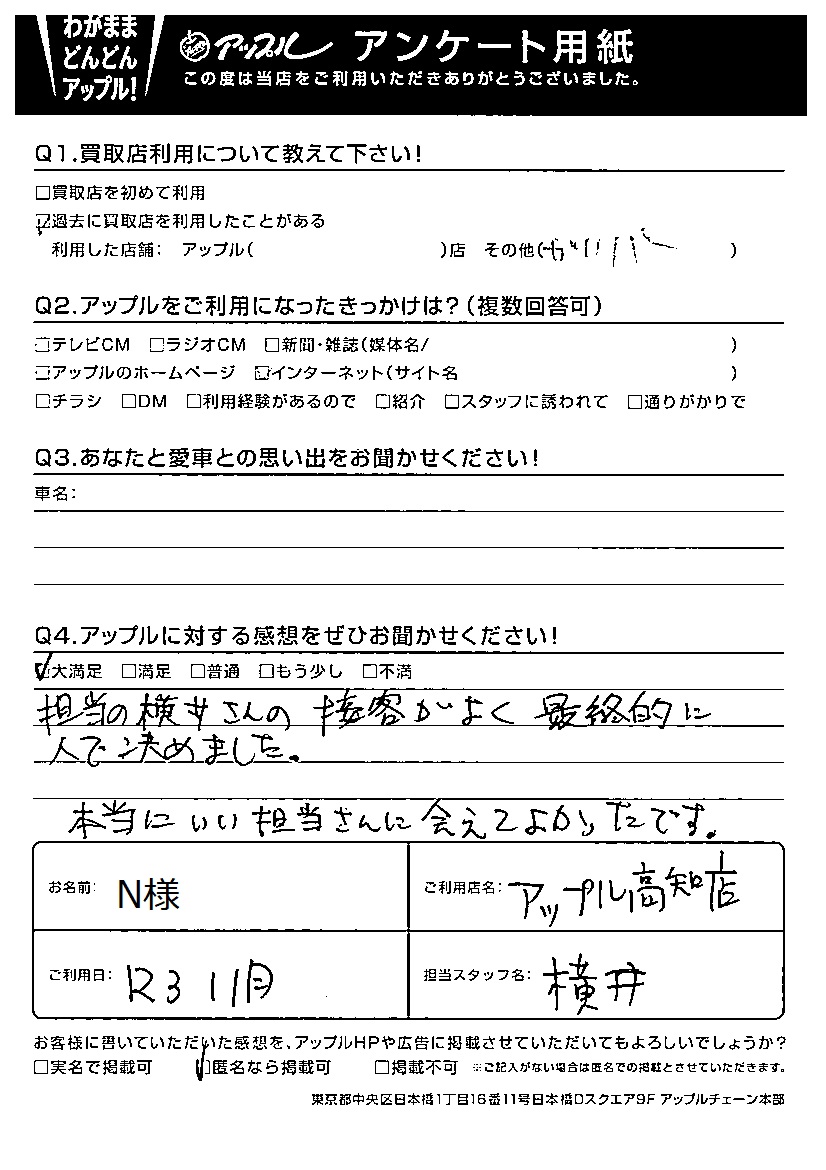 わがまま
どんどん
アップル!
アップル アンケート用紙
この度は当店をご利用いただきありがとうございました。
Q1.買取店利用について教えて下さい!
□買取店を初めて利用
☑過去に買取店を利用したことがある
利用した店舗: アップル( )店 その他(ガリバー )
Q2.アップルをご利用になったきっかけは?(複数回答可)
□テレビCM □ラジオCM □新聞・雑誌(媒体名/ )
□アップルのホームページ ☑インターネット(サイト名 )
□チラシ □DM □利用経験があるので □紹介 □スタッフに誘われて □通りがかりで
Q3.あなたと愛車との思い出をお聞かせください!
車名:
Q4.アップルに対する感想をぜひお聞かせください!
☑大満足 □満足 □普通 □もう少し □不満
担当の横井さんの接客がよく 最終的に
人で決めました。
本当にいい担当さんに会えてよかったです。
お名前: N様
ご利用店名: アップル高知店
ご利用日: R3 11月
担当スタッフ名: 横井
お客様に書いていただいた感想を、アップルHPや広告に掲載させていただいてもよろしいでしょうか?
□実名で掲載可 ☑匿名なら掲載可 □掲載不可 ※ご記入がない場合は匿名での掲載とさせていただきます。
東京都中央区日本橋1丁目16番11号日本橋Dスクエア9F アップルチェーン本部